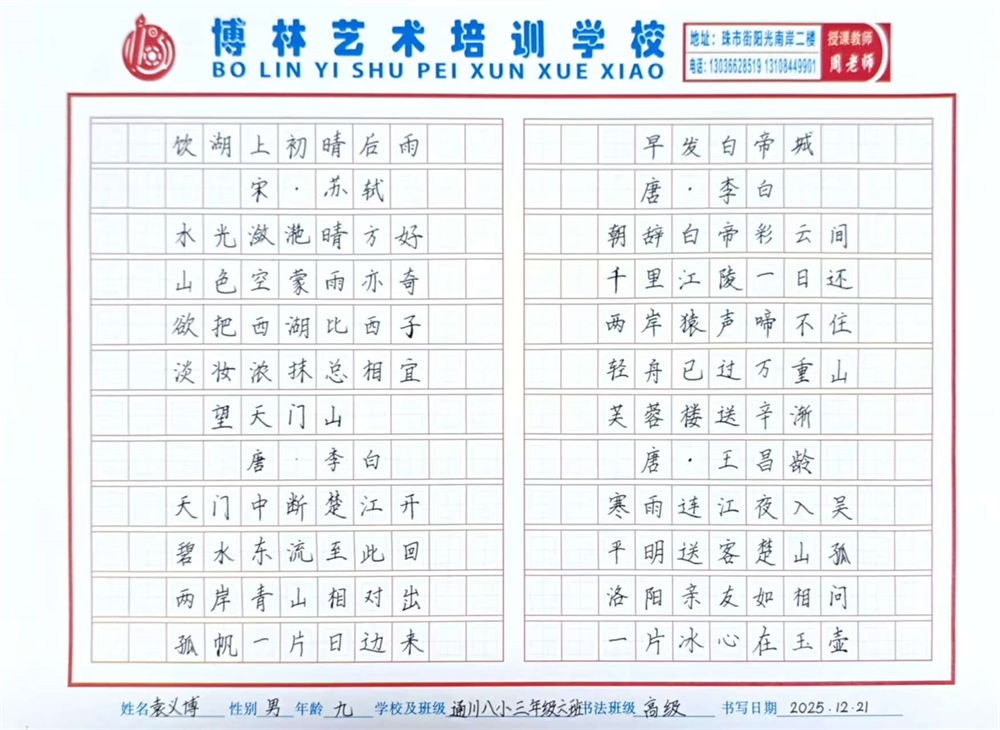 博林艺术培训学校
BO LIN YI SHU PEI XUN XUE XIAO
地址：珠市街阳光南岸二楼
电话：13036628519 13108449901
授课教师
周老师
饮湖上初晴后雨
宋·苏轼
水光潋滟晴方好
山色空蒙雨亦奇
欲把西湖比西子
淡妆浓抹总相宜
望天门山
唐·李白
天门中断楚江开
碧水东流至此回
两岸青山相对出
孤帆一片日边来
早发白帝城
唐·李白
朝辞白帝彩云间
千里江陵一日还
两岸猿声啼不住
轻舟已过万重山
芙蓉楼送辛渐
唐·王昌龄
寒雨连江夜入吴
平明送客楚山孤
洛阳亲友如相问
一片冰心在玉壶
姓名 袁义博 性别 男 年龄 九 学校及班级 通川八小三年级六班 书法班级 高级 书写日期 2025.12.21